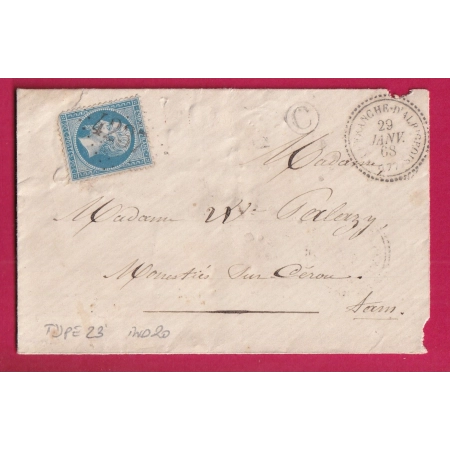 C
FRANCHE-D'ALBIGEOIS
29
JANV.
68
Madame
Madame Vve Palazy,
Monestiés sur Cérou.
Tarn.
TYPE 23 IND 20